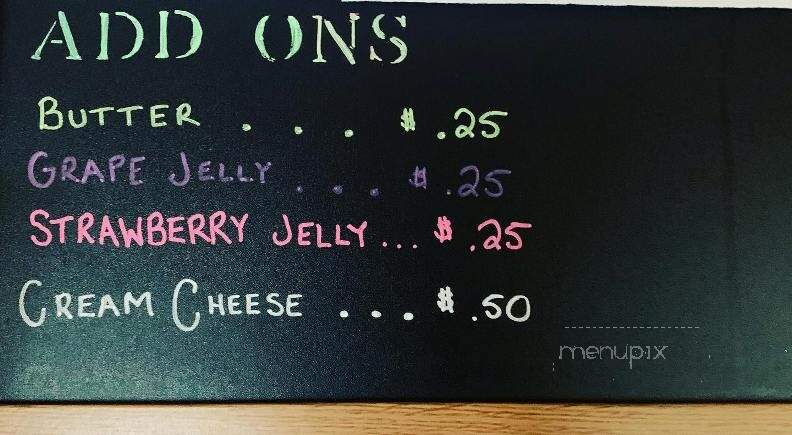 ADD ONS
BUTTER . . . $ .25
GRAPE JELLY . . . $ .25
STRAWBERRY JELLY ... $ .25
CREAM CHEESE . . . $ .50
menupix